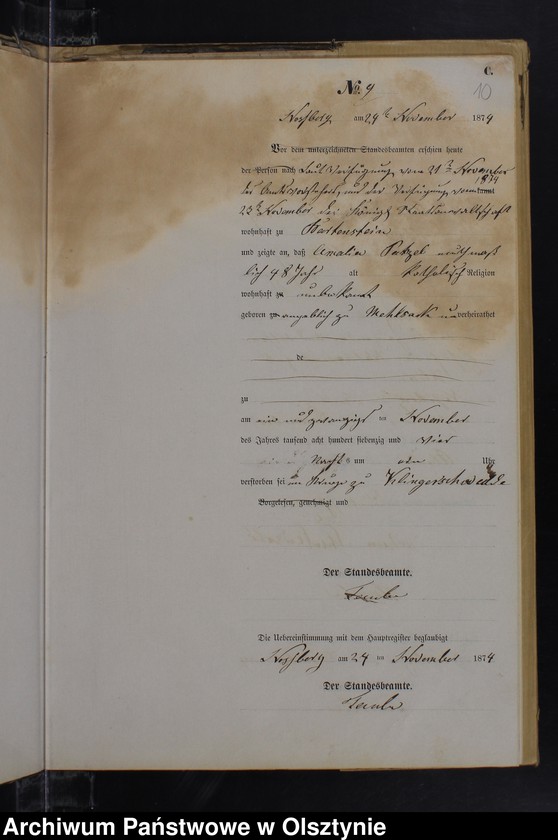 C.
No. 9
10
am 24 ten November 1874
Vor dem unterzeichneten Standesbeamten erschien heute
der Person nach Laut Verfügung vom 21 ten November
1874
des Amtsvorstehers, und der Verfügung vom kannt
23 ten November der Königl Staatsanwaltschaft
wohnhaft zu Bartenstein
und zeigte an, daß Amalia muthmaß
lich 48 Jahr alt katholisch Religion
wohnhaft zu unbekannt
geboren zu angeblich zu Mehlsack unverheirathet
de
zu
am ein und zwanzigs ten November
des Jahres tausend acht hundert siebenzig und vier
Nachts um Uhr
verstorben sei im Kruge zu
Vorgelesen, genehmigt und
Der Standesbeamte.
Die Uebereinstimmung mit dem Hauptregister beglaubigt
am 24 ten November 1874
Der Standesbeamte.
Archiwum Państwowe w Olsztynie